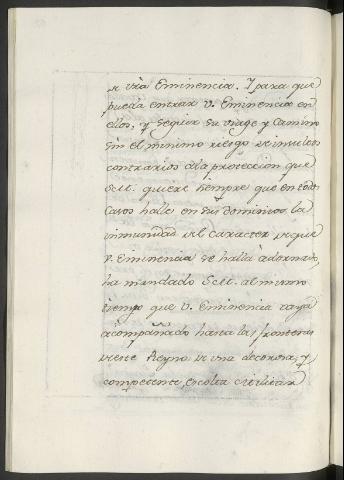 a vrâ Eminencia. Y para que
pueda entrar V. Eminencia en
ellos, y seguir su viage y camino
sin el minimo riesgo de insultos
contrarios ala proteccion que
S.M. quiere siempre que en todos
casos halle en sus dominios la
inmunidad del caracter de que
V. Eminencia se halla adornado,
ha mandado S.M. al mismo
tiempo que V. Eminencia vaya
acompañado hasta las fronteras
de este Reyno de una decorosa, y
competente, escolta de militar